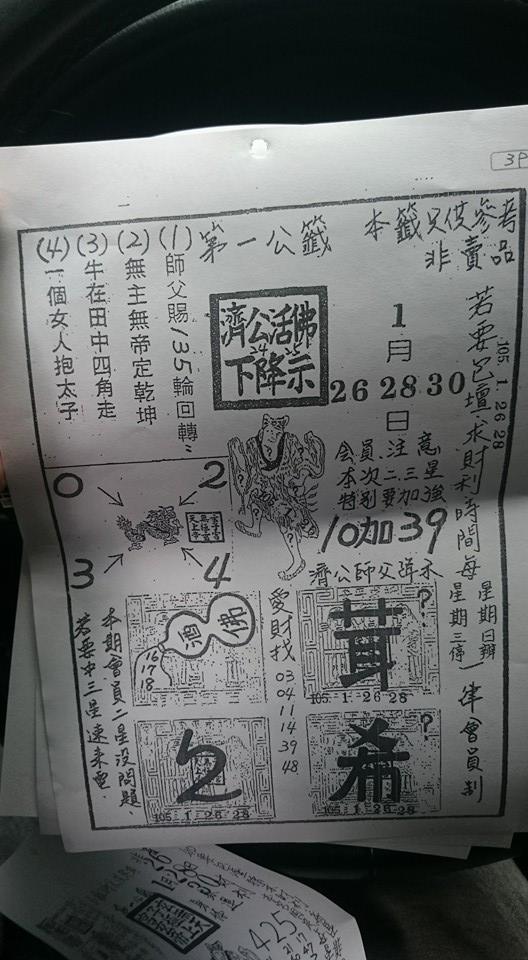 3P
本籤只供參考
非賣品
第一公籤
(1)師父賜/35輪回轉"
(2)無主無帝定乾坤
(3)牛在田中四角走
(4)一個女人抱太子
濟公活佛
下降示
1月
26 28 30
日
會員注意
本次二三星
特別要加強
10加39
濟公師父降示
若要包壇求財利時間每
星期日辦
星期三停
一律會員制
105 1 26 28
0
2
3
4
酒
佛
16
17
18
愛財找
03
04
11
14
39
48
茸
?
105 1 26 28
希
?
105 1 26 28
2
105 1 26 28
本期會員二星沒問題
若要中三星速來電
425